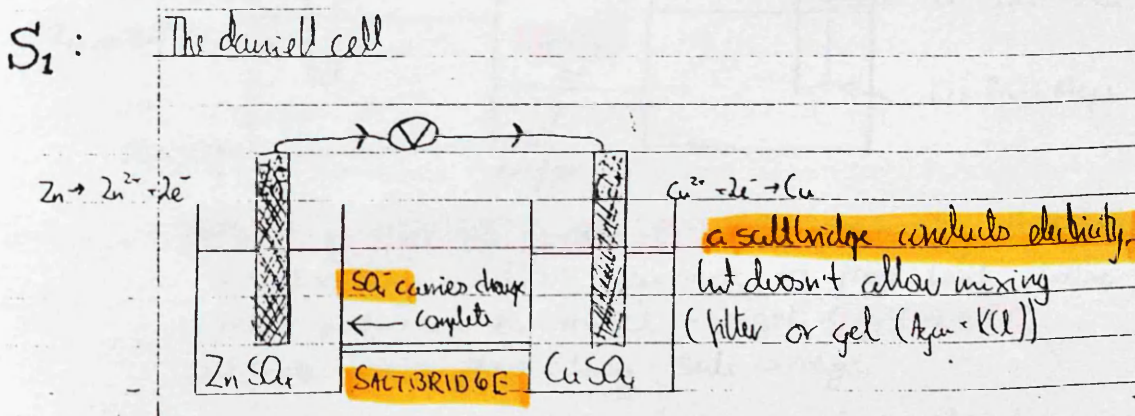 S₁:
The daniell cell
V
Zn → Zn²⁺ + 2e⁻
Cu²⁺ + 2e⁻ → Cu
a saltbridge conducts electricity,
but doesn't allow mixing
(filter or gel (Agar + KCl))
SO₄⁻ carries charge
← complete
ZnSO₄
SALTBRIDGE
CuSO₄